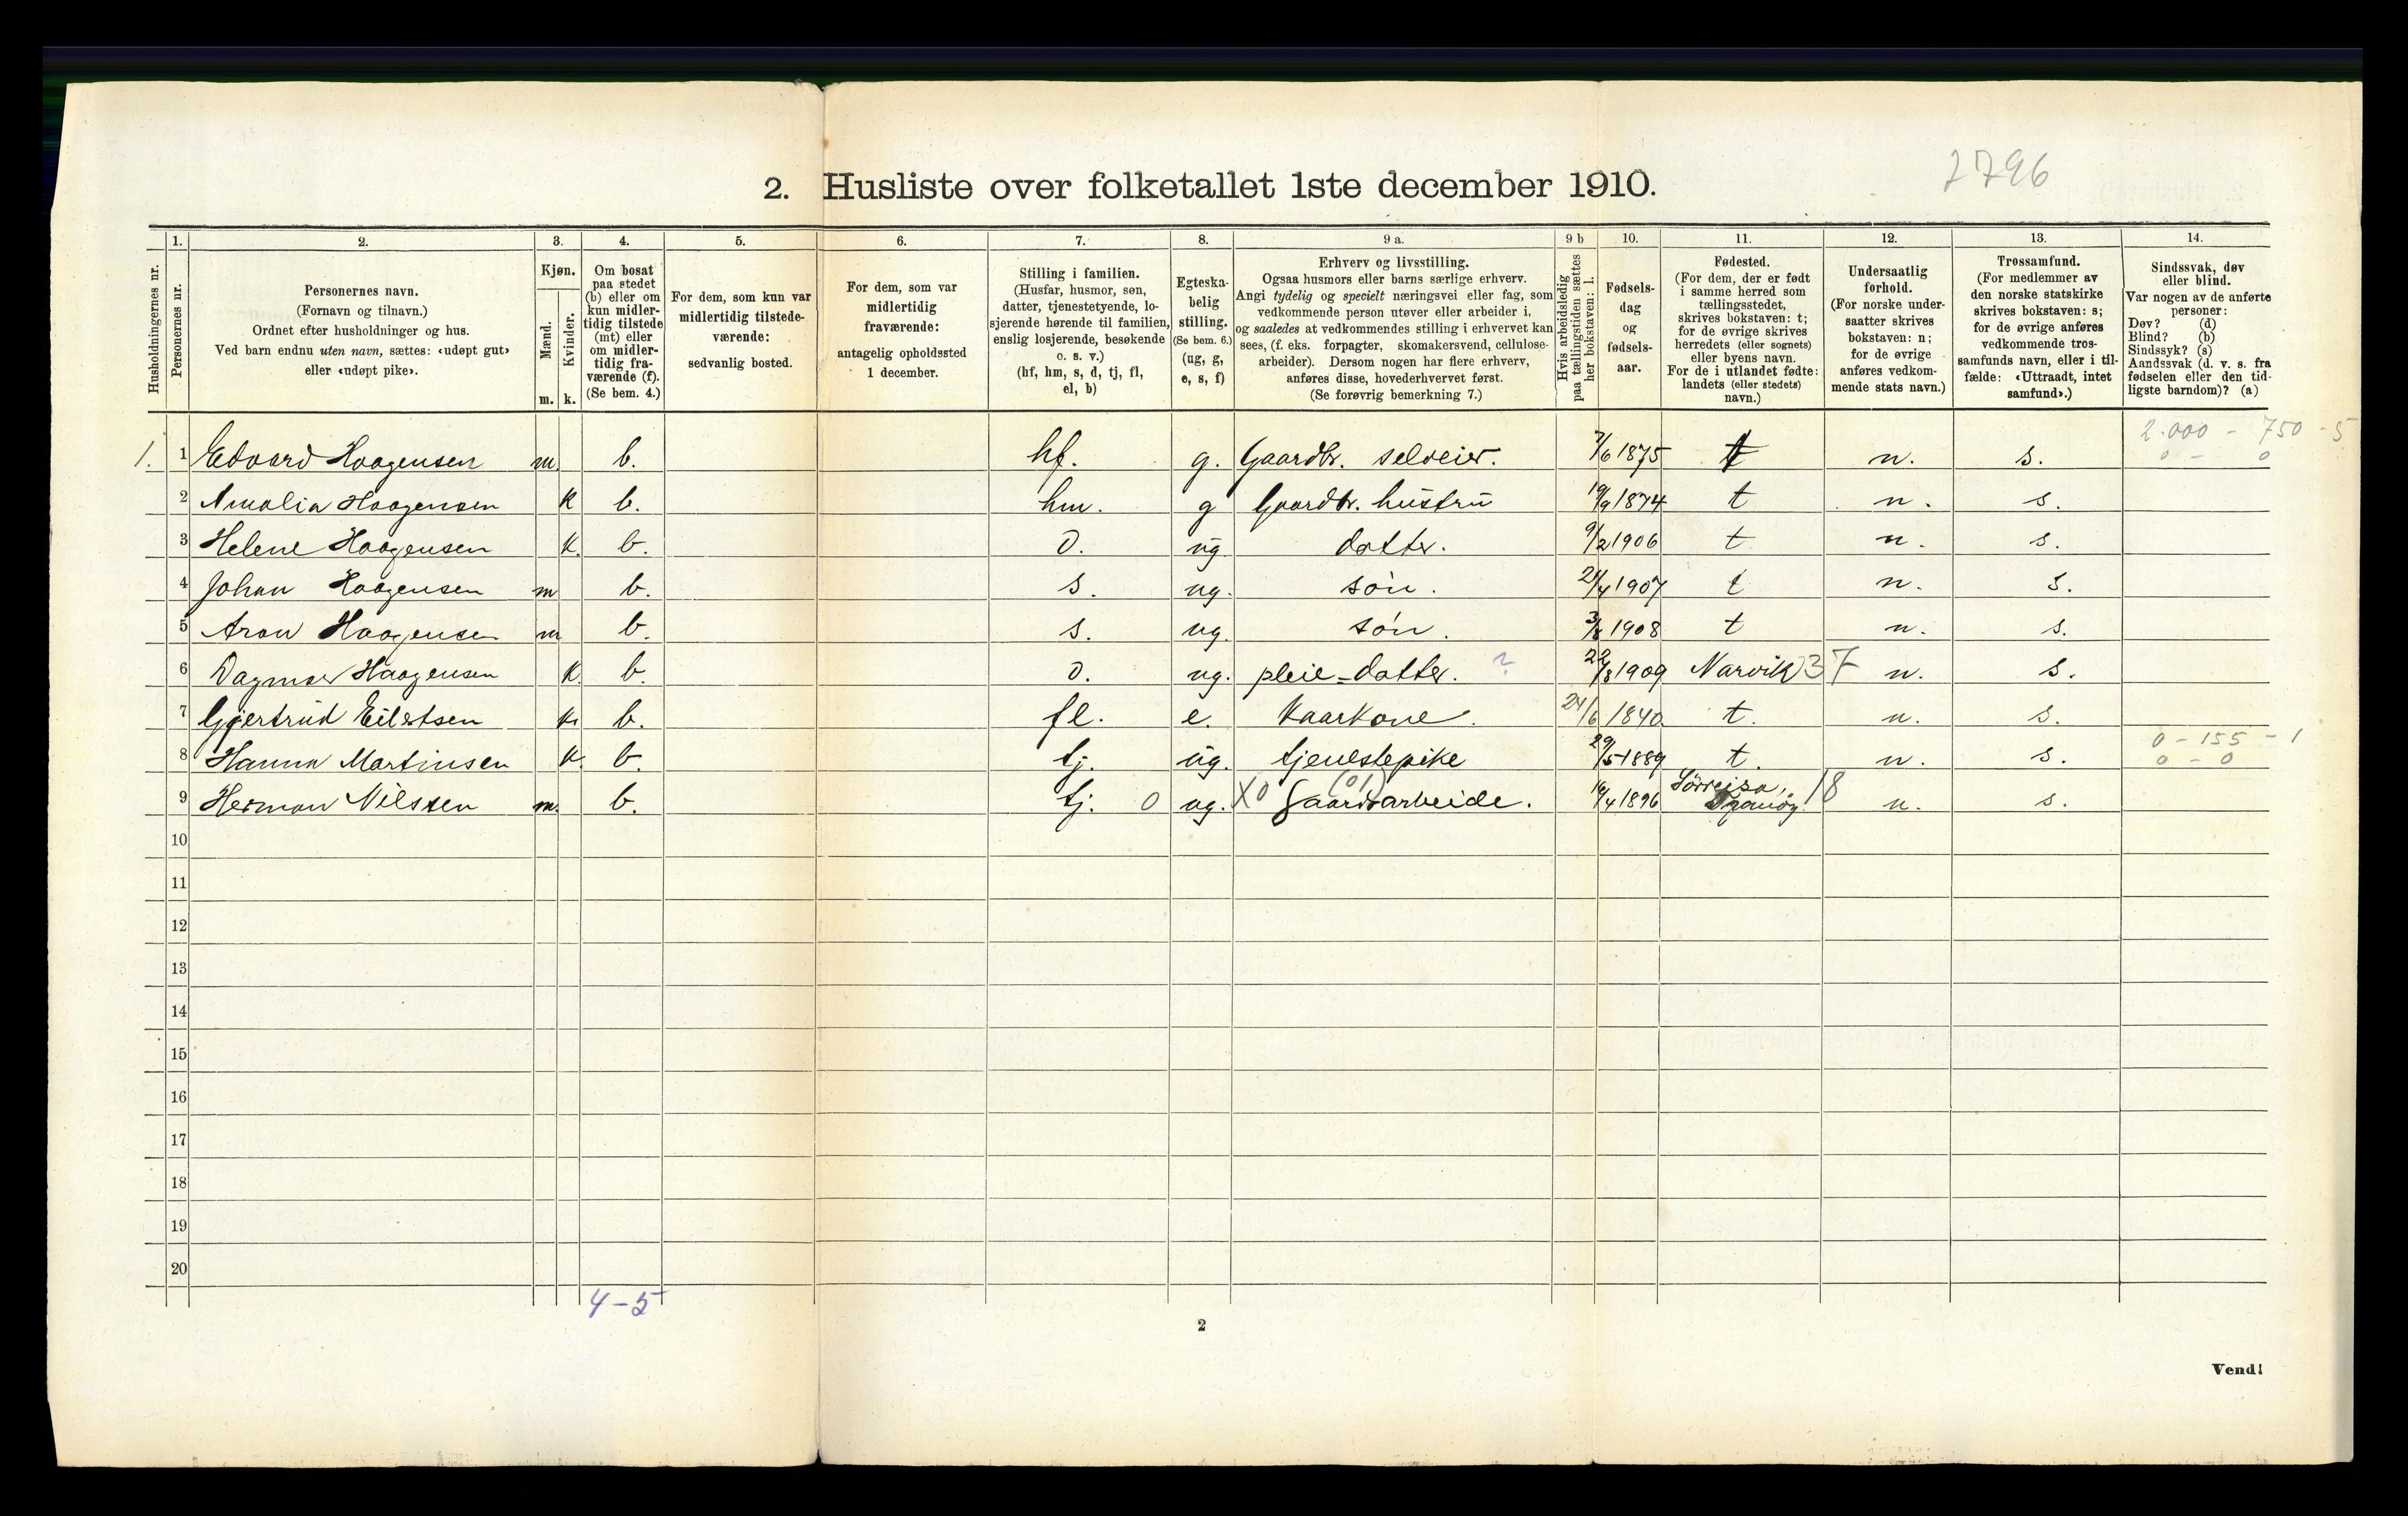 2796
2. Husliste over folketallet 1ste december 1910.
Husholdningernes nr.
1.
Personernes nr.
2.
Personernes navn.
(Fornavn og tilnavn.)
Ordnet efter husholdninger og hus.
Ved barn endnu uten navn, sættes: «udøpt gut»
eller «udøpt pike».
3.
Kjøn.
Mænd.
Kvinder.
m. k.
4.
Om bosat
paa stedet
(b) eller om
kun midler-
tidig tilstede
(mt) eller
om midler-
tidig fra-
værende (f).
(Se bem. 4.)
5.
For dem, som kun var
midlertidig tilstede-
værende:
sedvanlig bosted.
6.
For dem, som var
midlertidig
fraværende:
antagelig opholdssted
1 december.
7.
Stilling i familien.
(Husfar, husmor, søn,
datter, tjenestetyende, lo-
sjerende hørende til familien,
enslig losjerende, besøkende
o. s. v.)
(hf, hm, s, d, tj, fl,
el, b)
8.
Egteska-
belig
stilling.
(Se bem. 6.)
(ug, g,
e, s, f)
9 a.
Erhverv og livsstilling.
Ogsaa husmors eller barns særlige erhverv.
Angi tydelig og specielt næringsvei eller fag, som
vedkommende person utøver eller arbeider i,
og saaledes at vedkommendes stilling i erhvervet kan
sees, (f. eks. forpagter, skomakersvend, cellulose-
arbeider). Dersom nogen har flere erhverv,
anføres disse, hovederhvervet først.
(Se forøvrig bemerkning 7.)
9 b
Hvis arbeidsledig
paa tællingstiden sættes
her bokstaven: l.
10.
Fødsels-
dag
og
fødsels-
aar.
11.
Fødested.
(For dem, der er født
i samme herred som
tællingsstedet,
skrives bokstaven: t;
for de øvrige skrives
herredets (eller sognets)
eller byens navn.
For de i utlandet fødte:
landets (eller stedets)
navn.)
12.
Undersaatlig
forhold.
(For norske under-
saatter skrives
bokstaven: n;
for de øvrige
anføres vedkom-
mende stats navn.)
13.
Trossamfund.
(For medlemmer av
den norske statskirke
skrives bokstaven: s;
for de øvrige anføres
vedkommende tros-
samfunds navn, eller i til-
fælde: «Uttraadt, intet
samfund».)
14.
Sindssvak, døv
eller blind.
Var nogen av de anførte
personer:
Døv? (d)
Blind? (b)
Sindssyk? (s)
Aandssvak (d. v. s. fra
fødselen eller den tid-
ligste barndom)? (a)
2.000 - 750 - 5
0 - 0
1. 1 Edvard Haagensen m. b. hf. g. Gaardbr. selveier. 7/6 1875 t n. s.
2 Amalia Haagensen k b. hm. g Gaardbr. hustru 19/9 1874 t n. s.
3 Helene Haagensen k. b. d. ug. datter. 9/2 1906 t n. s.
4 Johan Haagensen m b. s. ug. søn. 21/4 1907 t n. s.
5 Aron Haagensen m b. s. ug. søn. 3/8 1908 t n. s.
6 Dagmar Haagensen k. b. d. ug. pleie-datter. ? 22/8 1909 Narvik 37 n. s.
7 Gjertrud Eilertsen k. b. fl. e. Kaarkone. 24/6 1840. t. n. s.
0 - 155 - 1
8 Hanna Martinsen k. b. tj. ug. tjenestepike 29/5 1889 t. n. s. 0 - 0
9 Herman Nilssen m. b. tj. 0 ug. X0 (01) Gaardsarbeide. 16/4 1896 Sørreisa, Tranøy. 18 n. s.
10
11
12
13
14
15
16
17
18
19
20
4-5
2
Vend!